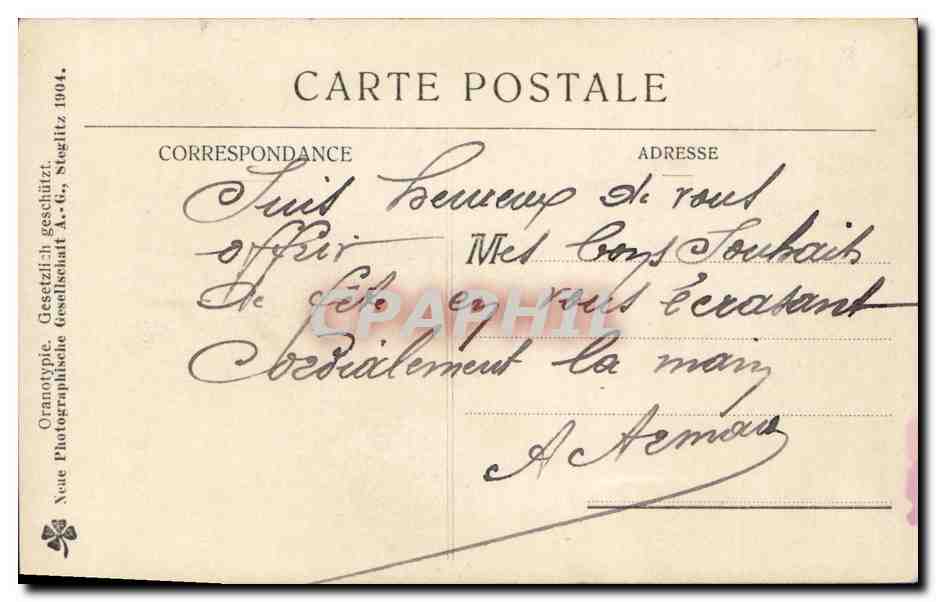 CARTE POSTALE
CORRESPONDANCE
ADRESSE
Suis heureux de vous
offrir Mes bons Souhaits
de fête en vous Écrasant
Cordialement la main
A
Oranotypie. Gesetzlich geschützt.
Neue Photographische Gesellschaft A.-G., Steglitz 1904.
CPAPHIL